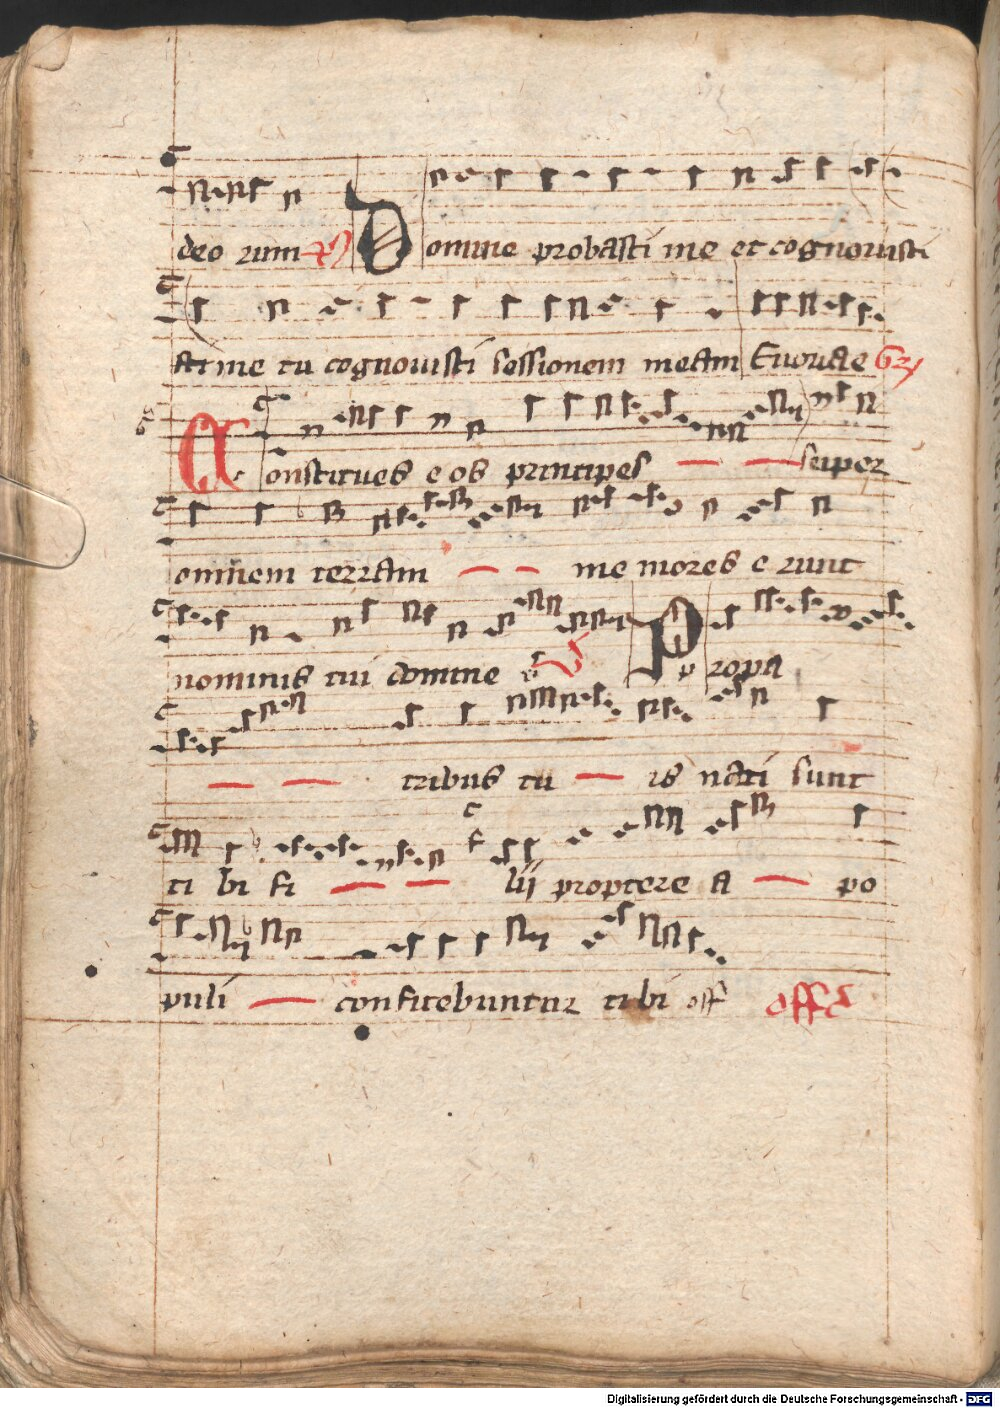 deo rum Domine probasti me et cognouisti
At me tu cognouisti sessionem meam Euouae Gr
Constitues e os principes super
omnem terram me mores e runt
nominis tui domine V Propa
tribus tu is nati sunt
ti bi fi lii proptere a po
puli confitebuntur tibi off offe
Digitalisierung gefördert durch die Deutsche Forschungsgemeinschaft - DFG